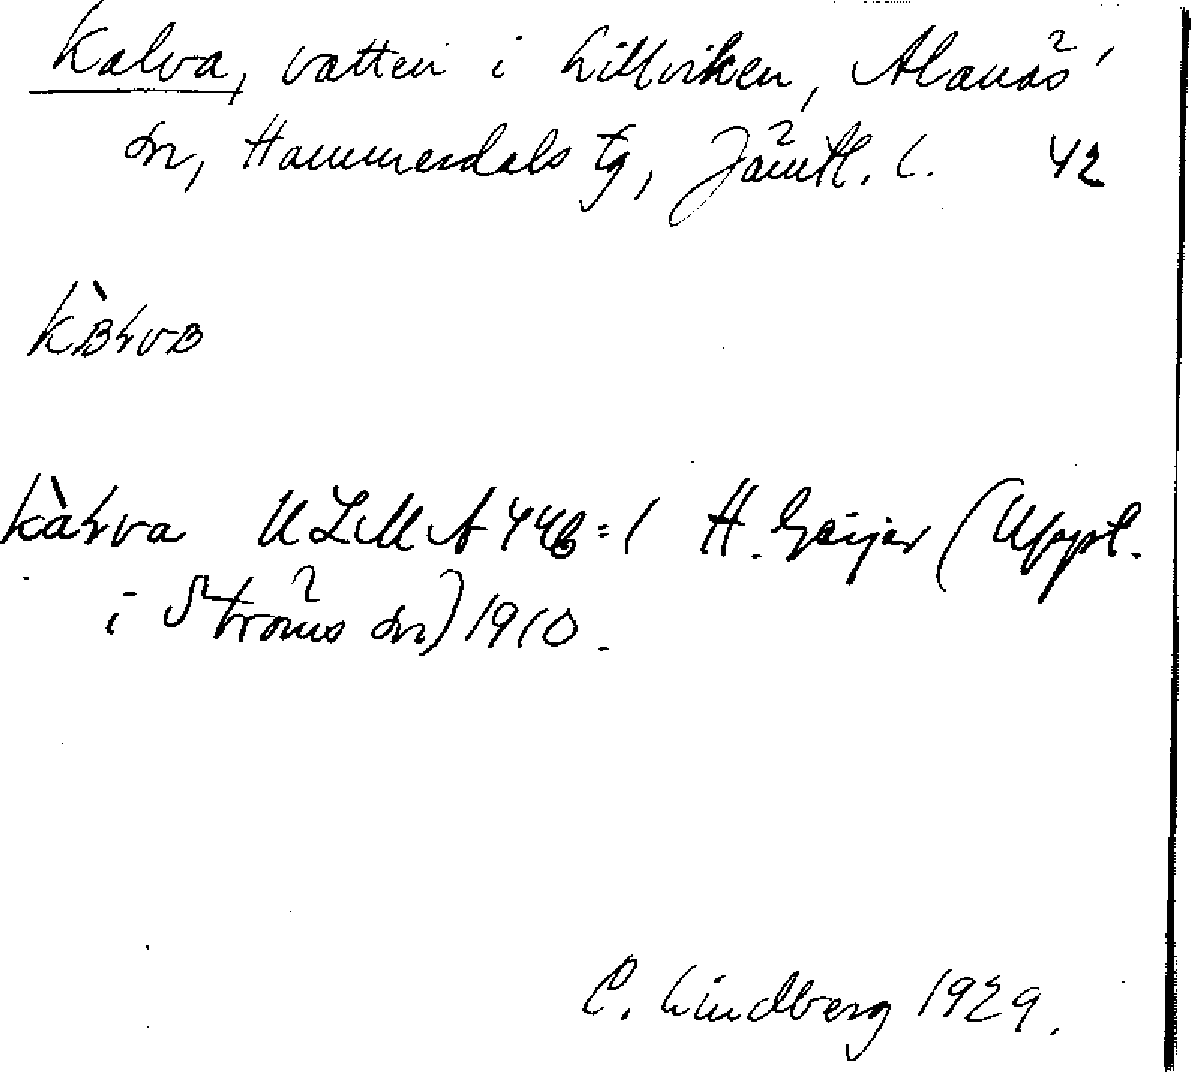 Kalva, vatten i Lillviken, Alanäs
sn, Hammerdals tg, Jämtl. l. 42
kàꞎva ULMA 446:1 H. Geijer (Uppt.
i Ströms sn) 1910.
C. Lindberg 1929.